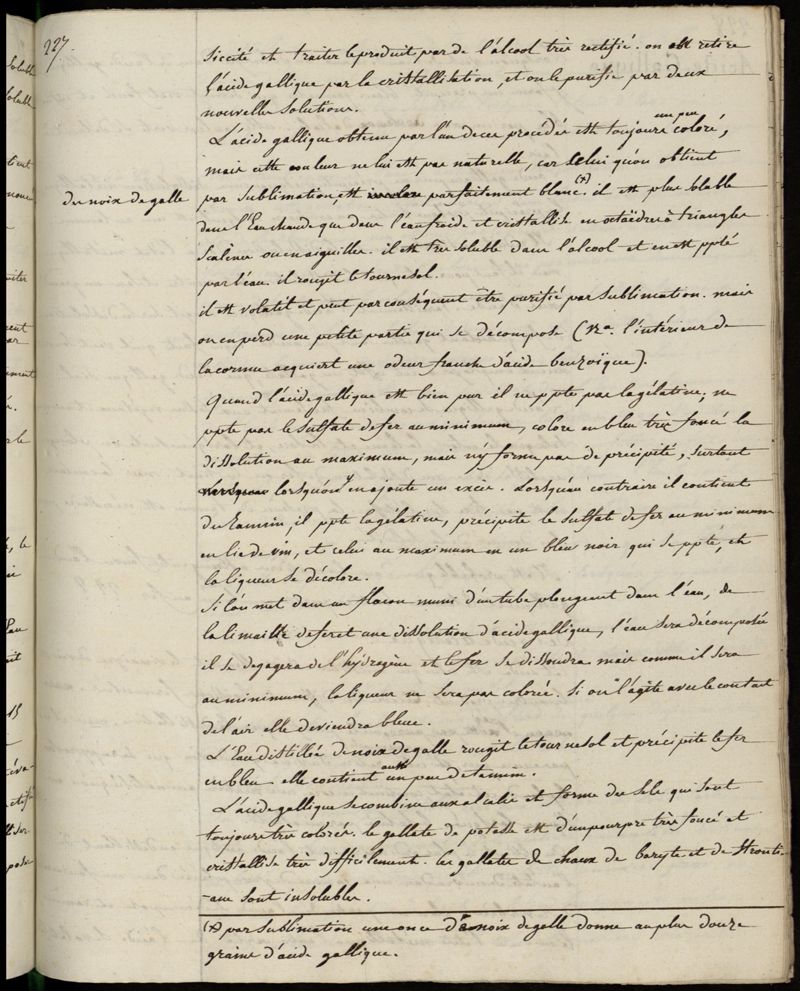 227.
siccité et traiter le produit par de l'alcool très rectifié. on en retire
l'acide gallique par la cristallisation, et on le purifie par deux
nouvelles solutions.
L'acide gallique obtenu par l'un de ces procédés est toujours un peu coloré,
mais cette couleur ne lui est pas naturelle, car celui qu'on obtient
du noix de galle
par sublimation est parfaitement blanc (*). il est plus soluble
dans l'Eau chaude que dans l'eau froide et cristallise en octaèdres à triangles
scalènes ou en aiguilles. il est très soluble dans l'alcool et en est ppté
par l'eau. il rougit le tournesol.
il est volatil et peut par conséquent être purifié par sublimation. mais
on en perd une petite partie qui se décompose (Na. l'intérieur de
la cornue acquiert une odeur franche d'acide benzoïque).
Quand l'acide gallique est bien pur il ne ppte pas la gélatine; ne
ppte pas le sulfate de fer au minimum, colore en bleu très foncé la
dissolution au maximum, mais n'y forme pas de précipité, surtout
lorsqu'on y en ajoute un excès. Lorsqu'au contraire il contient
du tannin, il ppte la gélatine, précipite le sulfate de fer au minimum
en lie de vin, et celui au maximum en un bleu noir qui se ppte, et
la liqueur se décolore.
Si l'on met dans un flacon muni d'un tube plongeant dans l'eau, de
la limaille de fer et une dissolution d'acide gallique, l'eau sera décomposée
il se dégagera de l'hydrogène et le fer se dissoudra mais comme il sera
au minimum, la liqueur ne sera pas colorée. Si on l'agite avec le contact
de l'air elle deviendra bleue.
L'Eau distillée de noix de galle rougit le tournesol et précipite le fer
en bleu elle contient aussi un peu de tannin.
L'acide gallique se combine aux alcalis et forme des sels qui sont
toujours très colorés. le gallate de potasse est d'un pourpre très foncé et
cristallise très difficilement. les gallates de chaux de baryte et de stronti-
-ane sont insolubles.
(*) par sublimation une once de noix de galle donne au plus douze
grains d'acide gallique.